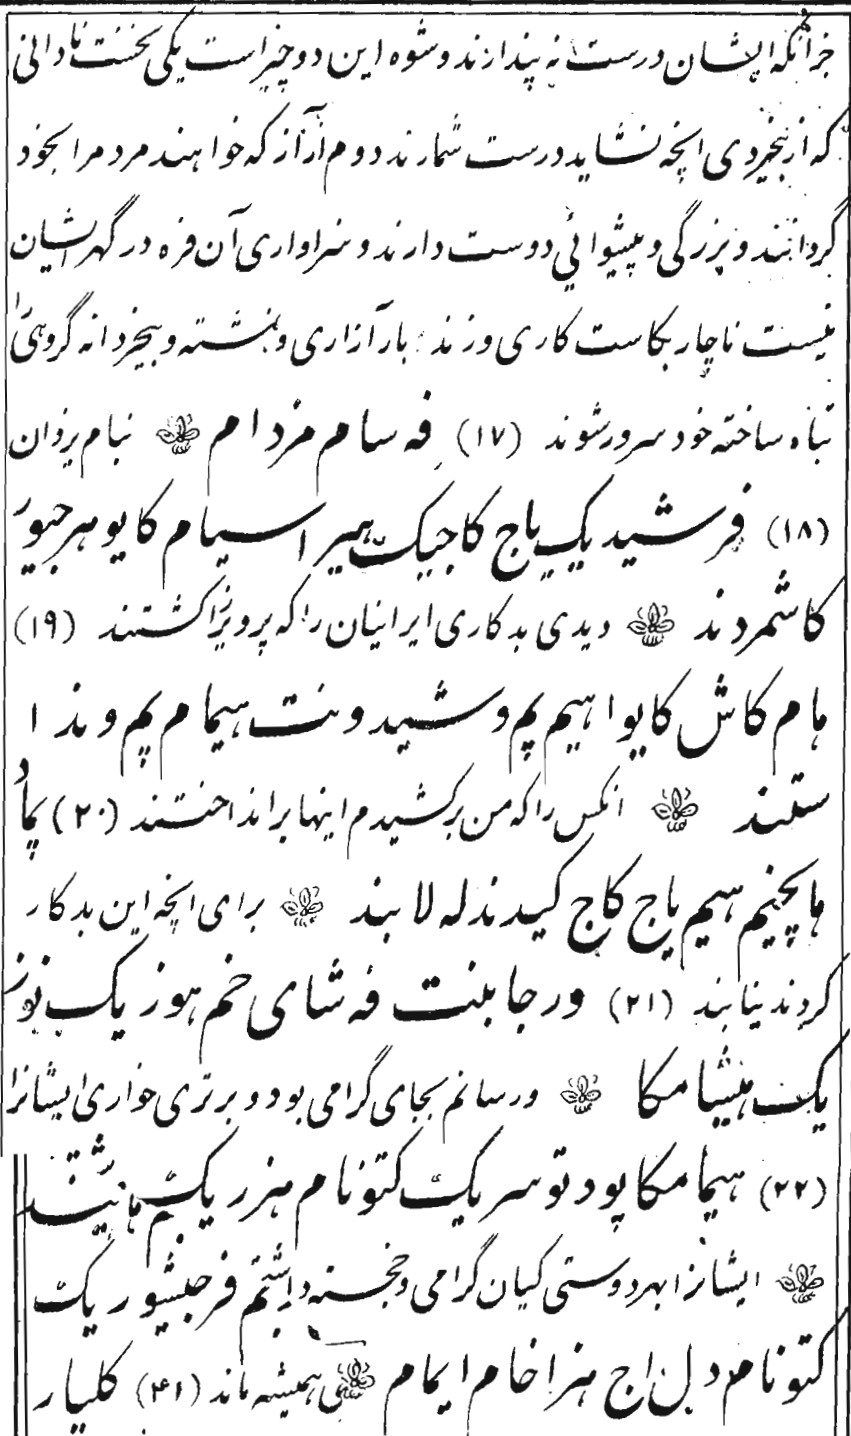 جز آنکه ایشان درست نه پندارند و شوه این دو چیز است یکی نخست نادانی
که از بیخردی انچه نشاید درست شمارند دوم آز که خواهند مردم را بخود
گردانند و بزرگی و پیشوائی دوست دارند و سزاواری آن فره در گهر ایشان
نیست ناچار بکاست کاری ورزند بار آزاری و و بیخردانه گروهی را
تباه ساخته خود سرور شوند (۱۷) فه سام مزدام بنام یزدان
(۱۸) فرشید یک یاج کاجیک هیر اسیام کایو هرجیور
کاشمردند دیدی بد کاری ایرانیان را که پرویز را کشتند (۱۹)
هام کاش کایوا هیم پم وشیدونت هیمام پم وندا
ستند انکس را که من برکشیدم اینها برانداختند (۲۰) پماد
هاپخیم هیم یاج کاج کیدند له لابند برای انچه این بد کار
کردند نیابند (۲۱) ورجابنت فه شای خم هوز یک نوز
یک هیشامکا ورسانم بجای گرامی بود و برتری خواری ایشانرا
(۲۲) هیمامکا پود تو سریک کتونام هنرریک
ایشانرا بهر دوستی کیان گرامی و خجسته داشتم فرجیشیوریک
کتونام دل اج هزاخام ایمام همیشه ماند (۴۱) کلیار